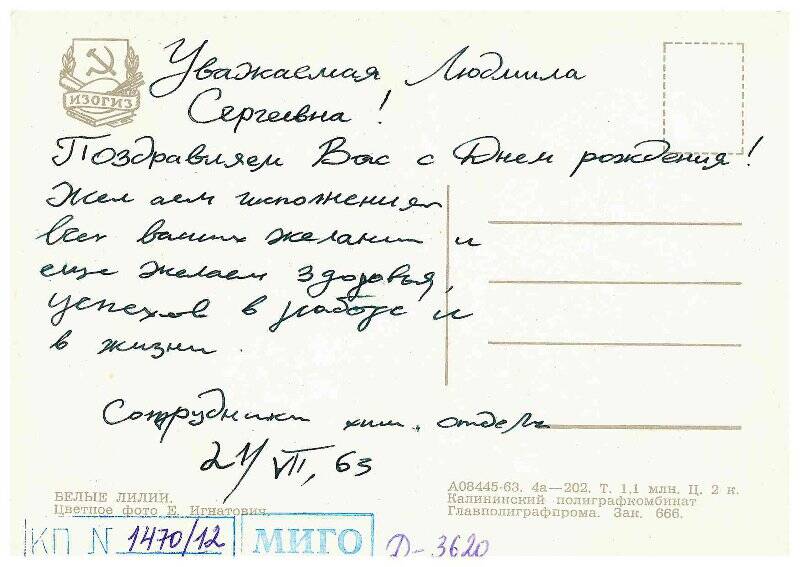 ИЗОГИЗ
Уважаемая Людмила
Сергеевна!
Поздравляем Вас с Днем рождения!
Желаем исполнения
всех ваших желаний и
еще желаем здоровья,
успехов в работе и
в жизни.
Сотрудники хим. отдела
21/VII, 63
БЕЛЫЕ ЛИЛИИ.
Цветное фото Е. Игнатович.
А08445-63. 4а—202. Т. 1,1 млн. Ц. 2 к.
Калининский полиграфкомбинат
Главполиграфпрома. Зак. 666.
КП N 1470/12
МИГО
Д-3620